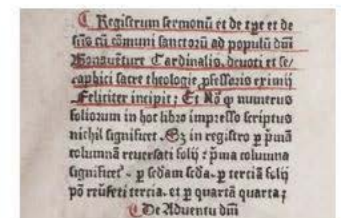 ¶ Registrum sermonū et de tꝑe et de
sctis cū cōmuni sanctorū ad populū dñi
Bonauēture Cardinalis, deuoti et se/
raphici sacre theologie ꝓfessoris eximij
Feliciter incipit; Et Nō ꝙ numerus
foliorum in hoc libro impresso scriptus
nichil significet. Sꝫ in registro ꝑ pͥmā
columnā reuersati folij: pͥma columna
significet᷑. ꝑ scđam scđa. ꝑ terciā folij
tercia. et ꝑ quartā quarta;
¶ De Aduentu dñi